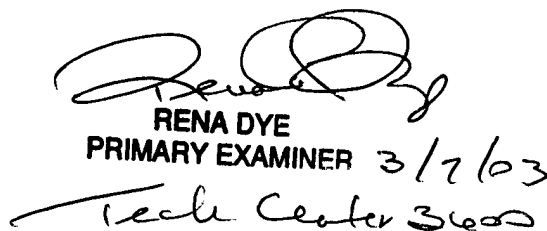 Rena Dye
RENA DYE
PRIMARY EXAMINER 3/7/03
Tech Center 3600